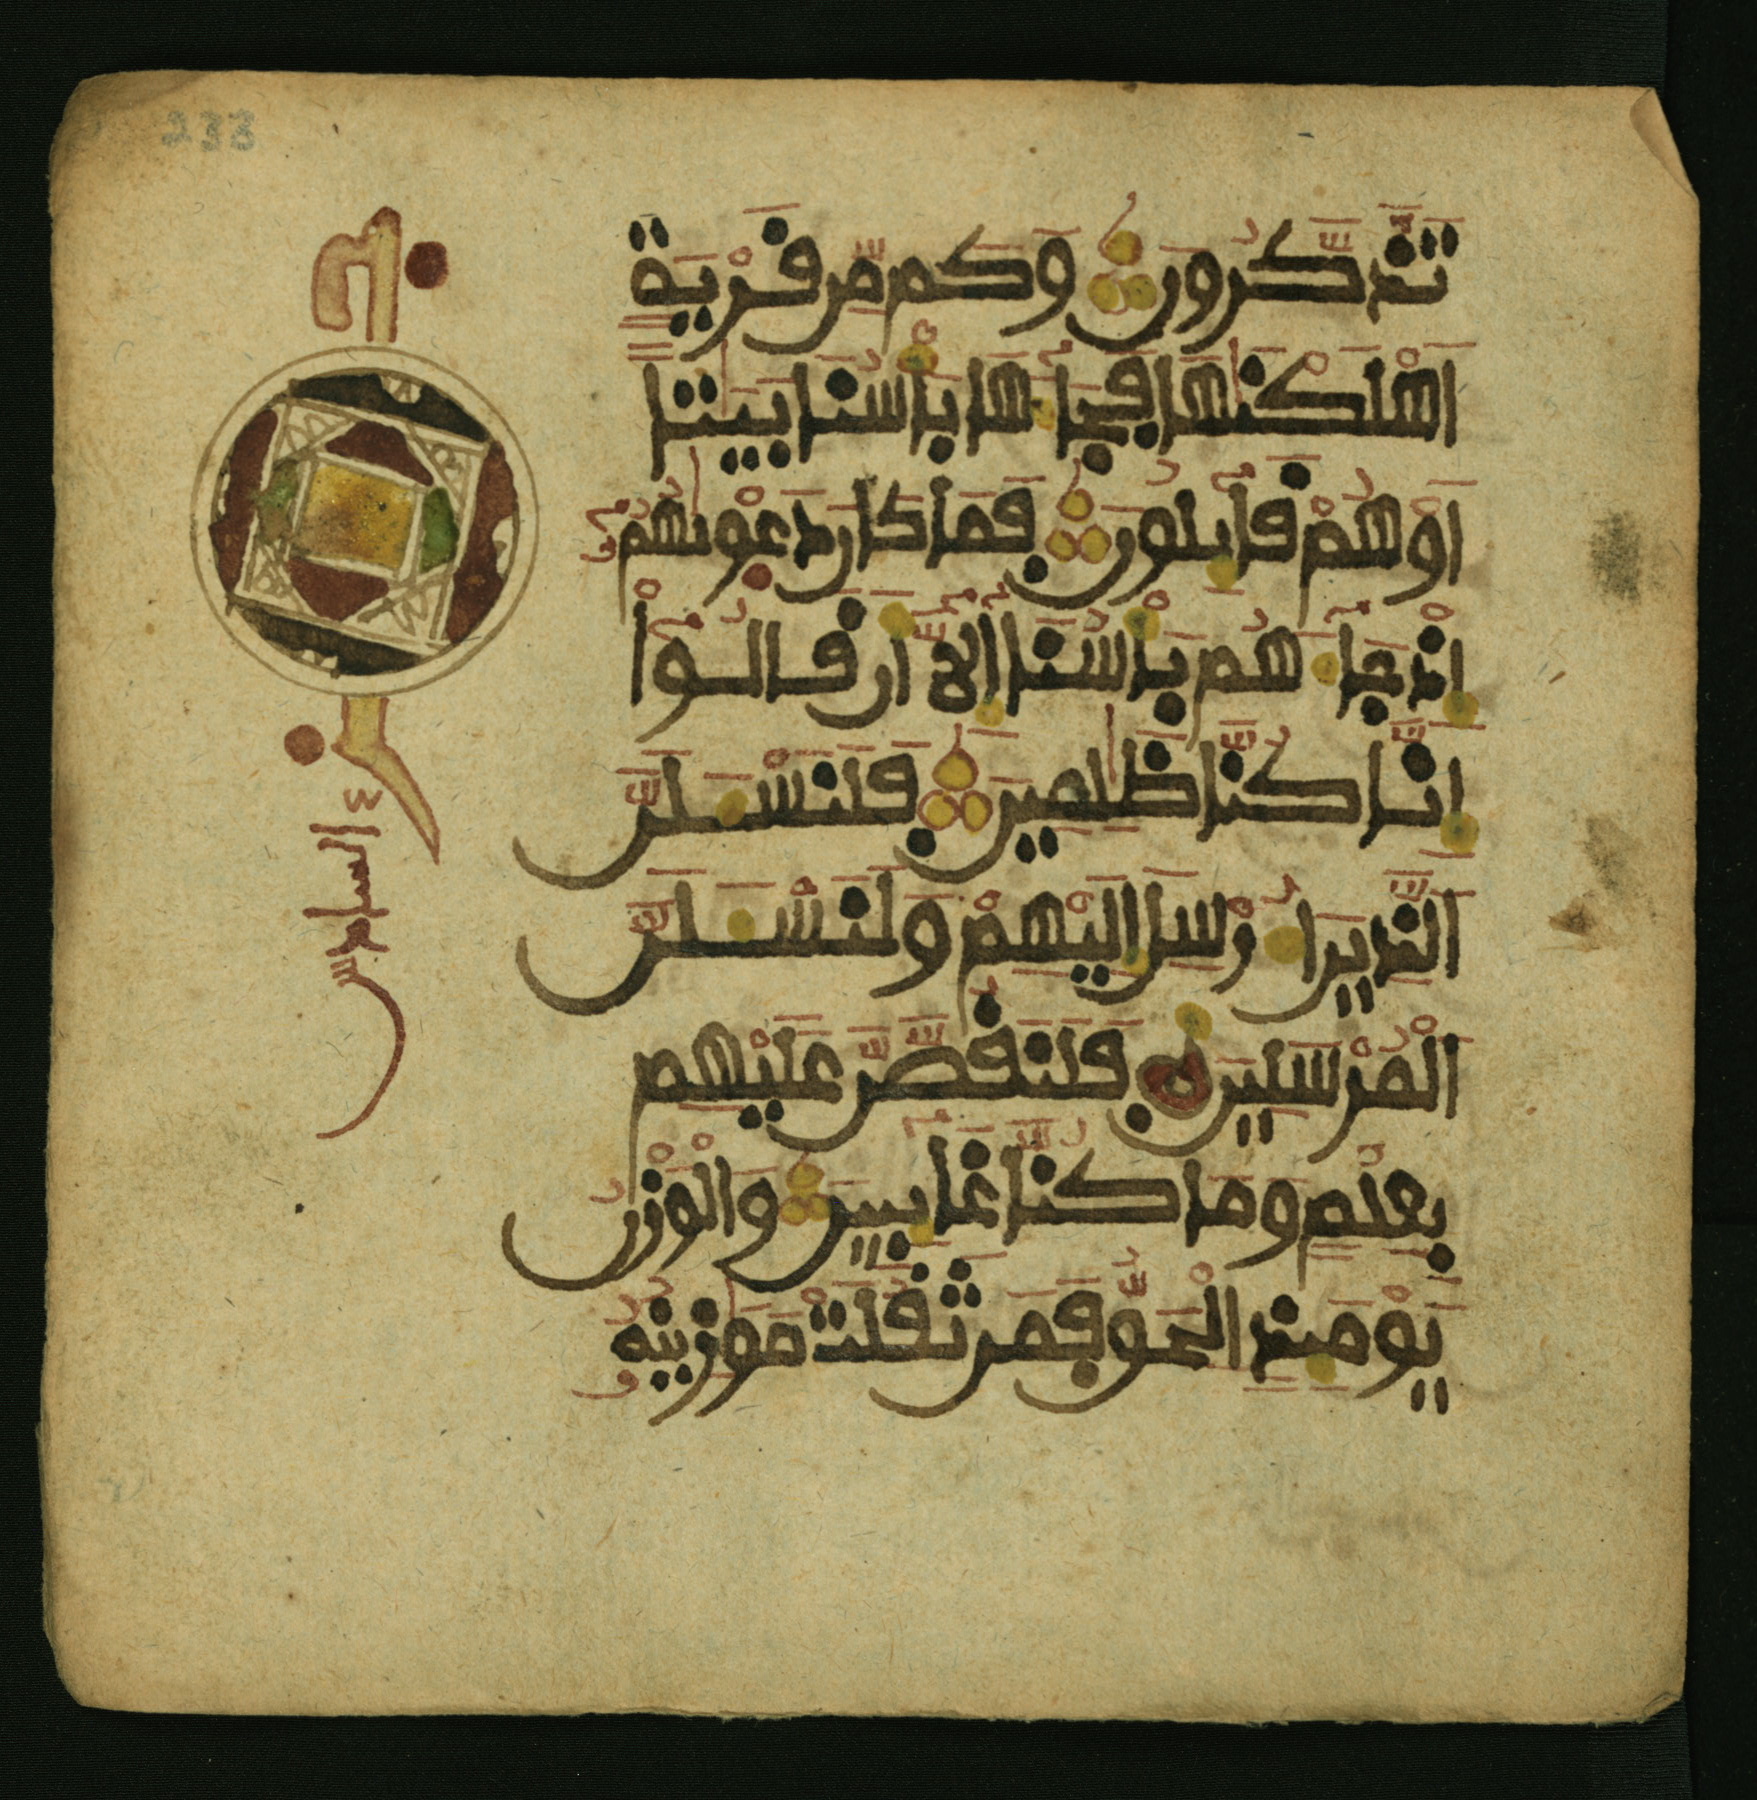 تذكرون وكم من قرية
اهلكنها فجاها باسنا بيتا
او هم قايلون فما كان دعويهم
اذ جاهم باسنا الا ان قالوا
انا كنا ظلمين فلنسلن
الذين ارسل اليهم ولنسلن
المرسلين فلنقصن عليهم
بعلم وما كنا غايبين والوزن
يومئذ الحق فمن ثقلت موزينه
السادس